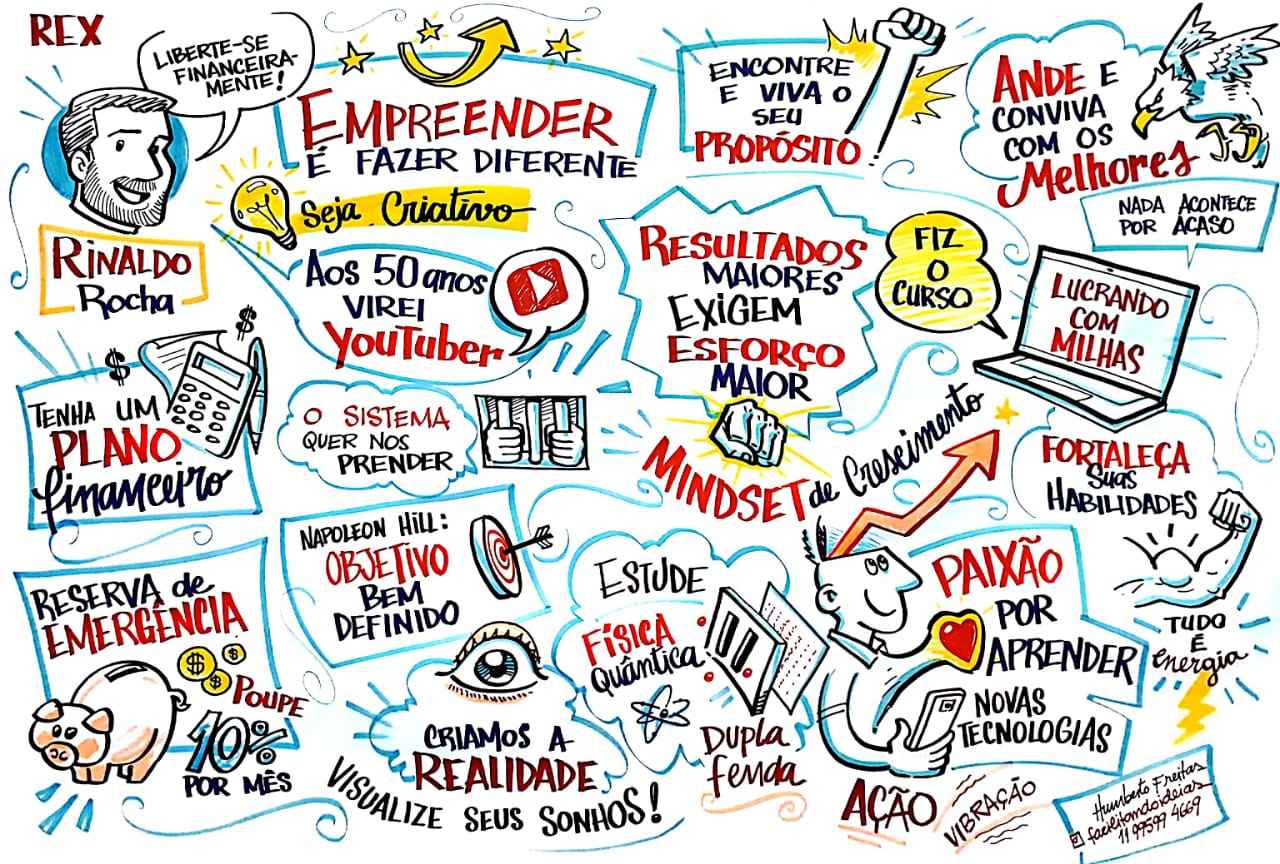 REX
LIBERTE-SE
FINANCEIRA-
MENTE!
RINALDO
ROCHA
EMPREENDER
É FAZER DIFERENTE
Seja Criativo
ENCONTRE
E VIVA O
SEU
PROPÓSITO!
ANDE E
CONVIVA
COM OS
Melhores
NADA ACONTECE
POR ACASO
AOS 50 anos
VIREI
YouTuber
RESULTADOS
MAIORES
EXIGEM
ESFORÇO
MAIOR
FIZ
O
CURSO
LUCRANDO
COM
MILHAS
$
$
TENHA UM
PLANO
financeiro
O SISTEMA
QUER NOS
PRENDER
MINDSET de Crescimento
FORTALEÇA
Suas
HABILIDADES
NAPOLEON HILL:
OBJETIVO
BEM
DEFINIDO
ESTUDE
FÍSICA
Quântica
DUPLA
fenda
PAIXÃO
POR
APRENDER
NOVAS
TECNOLOGIAS
TUDO
É
energia
RESERVA de
EMERGÊNCIA
$
$
$
POUPE
10%
POR MÊS
CRIAMOS A
REALIDADE
VISUALIZE SEUS SONHOS!
AÇÃO
VIBRAÇÃO
Humberto Freitas
facilitandoideias
11 99599 4669